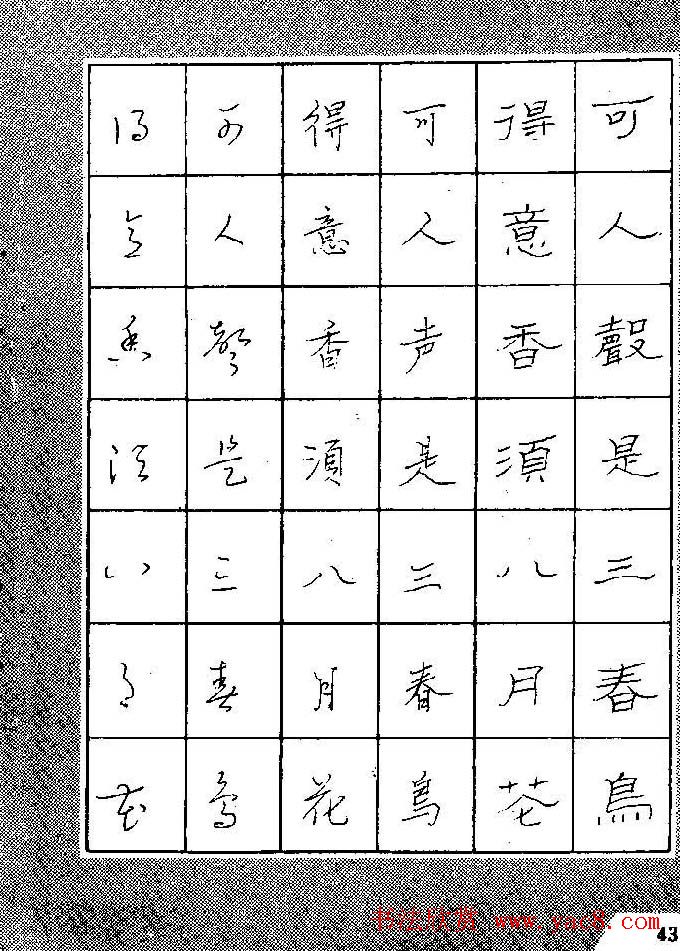 可人聲是三春鳥
得意香湏八月花
可人声是三春鳥
得意香湏八月花
可人聲是三春鳥
得意香須八月花
书法欣赏 www.yac8.com
43